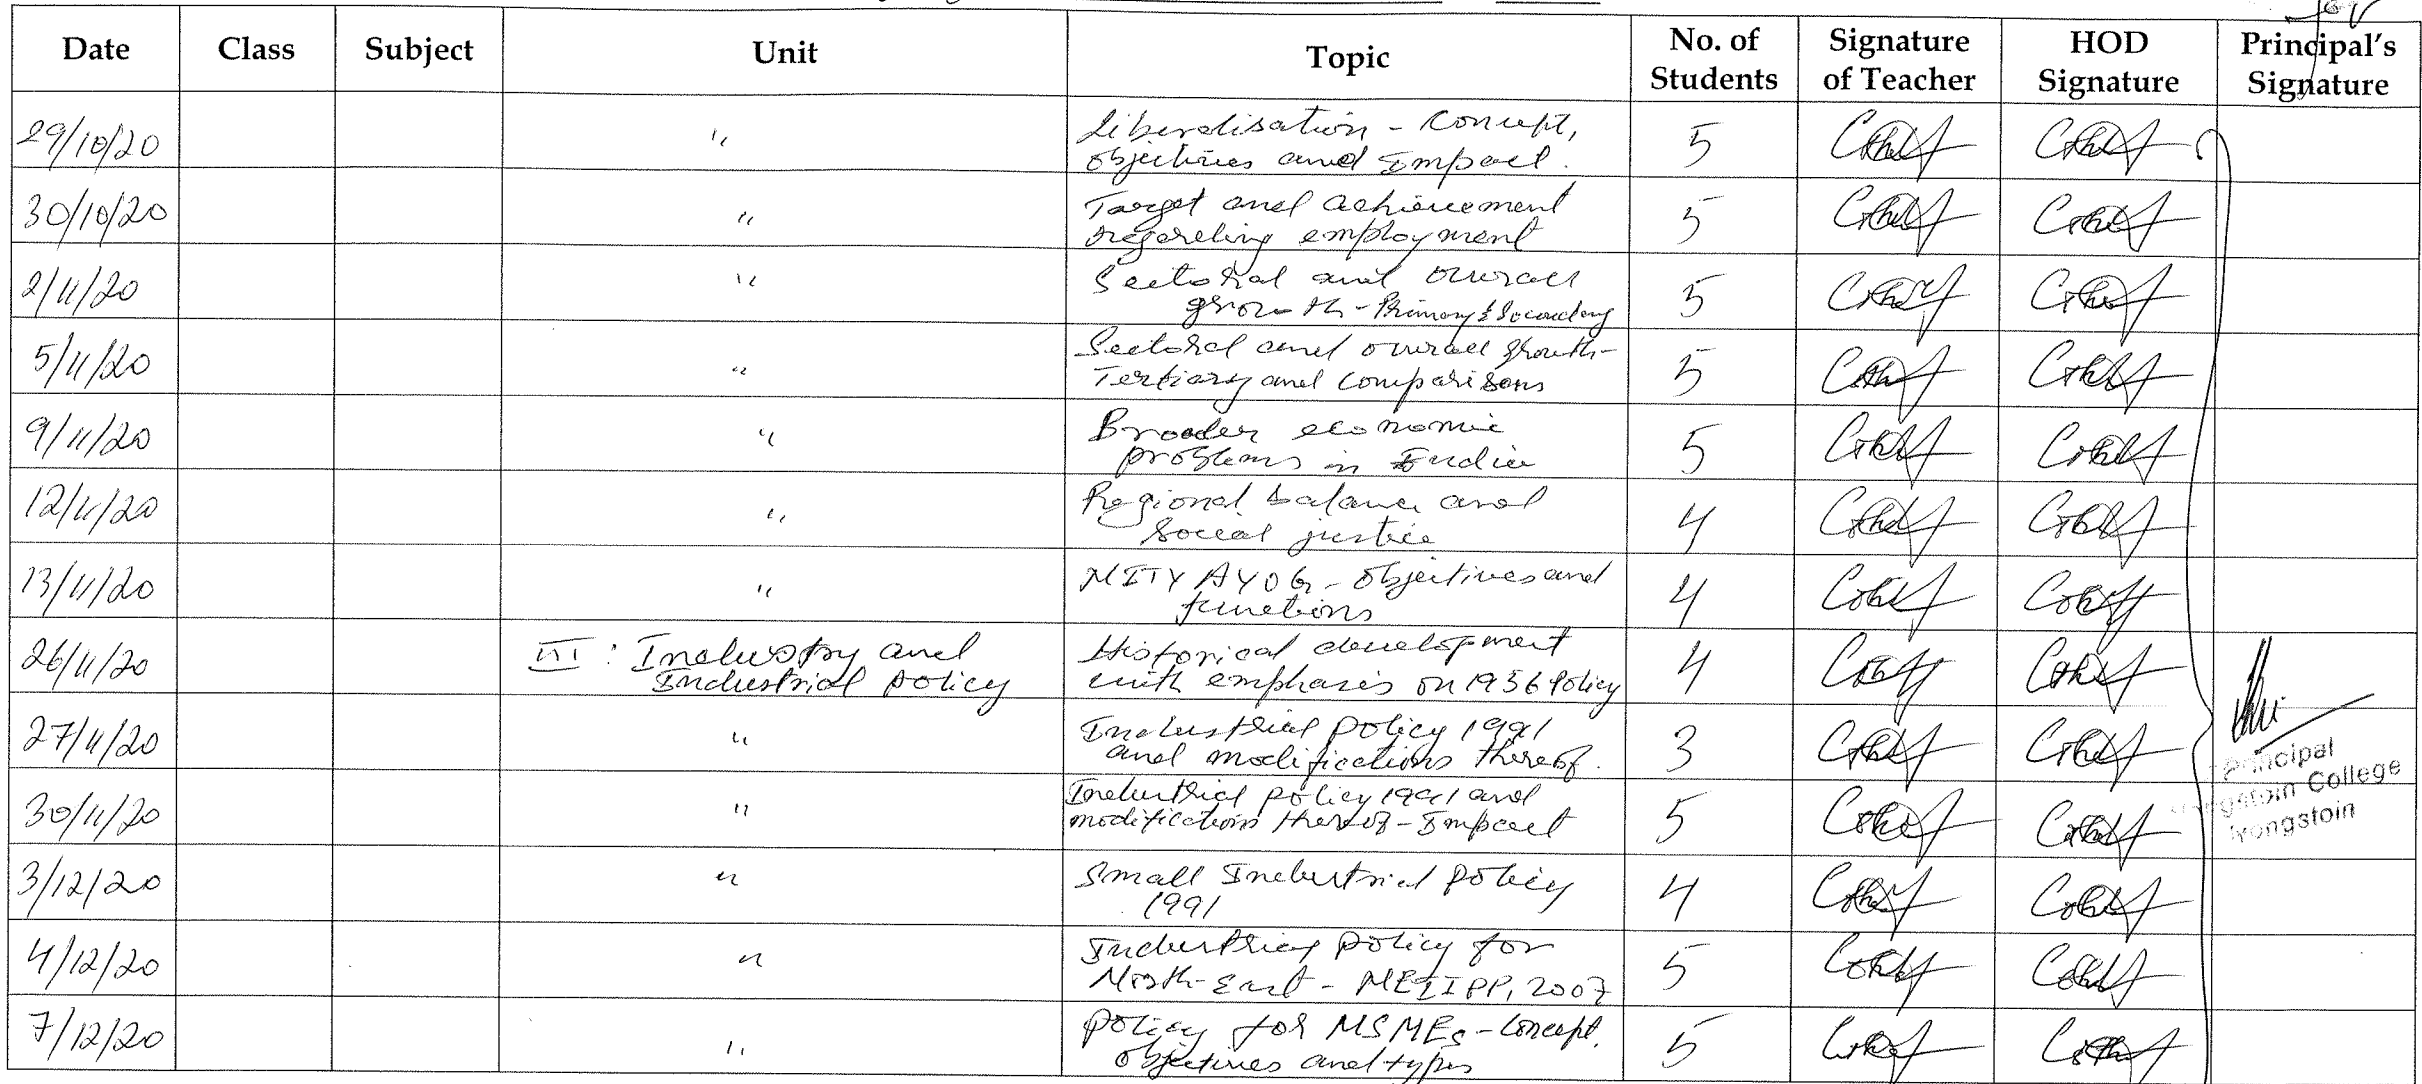 Date Class Subject Unit Topic No. of Students Signature of Teacher HOD Signature Principal's Signature
29/10/20 " Liberalisation - Concept, 5
objectives and Impact.
30/10/20 " Target and achievement 5
regarding employment
2/11/20 " Sectoral and overall 5
growth - Primary & Secondary
5/11/20 " Sectoral and overall growth - 5
Tertiary and comparisons
9/11/20 " Broader economic 5
problems in India
12/11/20 " Regional balance and 4
Social justice
13/11/20 " NITY AYOG - Objectives and 4
functions
26/11/20 III : Industry and Historical development 4
Industrial policy with emphasis on 1956 Policy
27/11/20 " Industrial policy 1991 3
and modifications thereof.
30/11/20 " Industrial policy 1991 and 5
modifications thereof - Impact
3/12/20 " Small Industrial policy 4
1991
4/12/20 " Industrial policy for 5
North-East - NEIIPP, 2007
7/12/20 " Policy for MSMEs - Concept, 5
Objectives and types
Principal
College